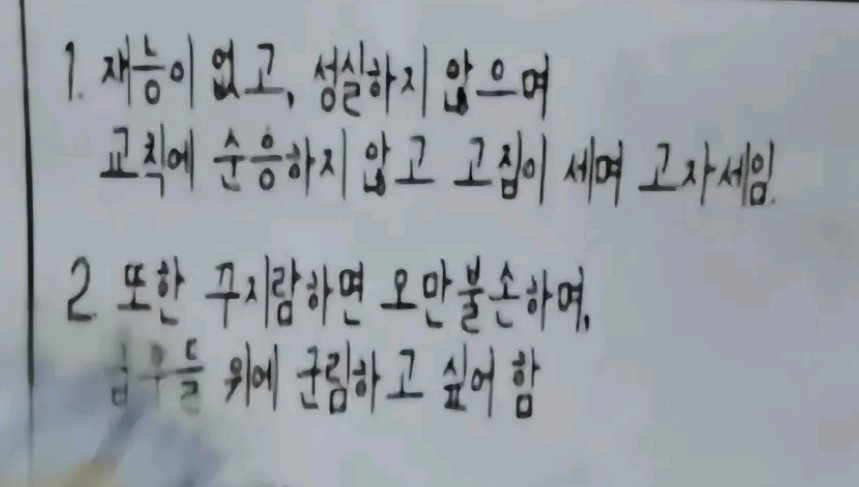 1. 재능이 없고, 성실하지 않으며
교칙에 순응하지 않고 고집이 세며 고자세임.
2. 또한 꾸지람하면 오만불손하며,
위에 군림하고 싶어 함